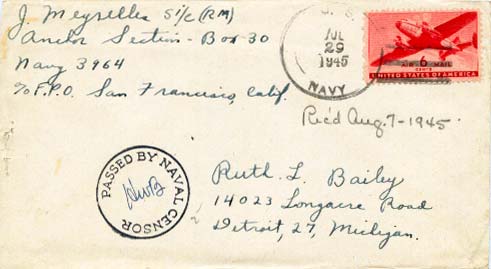 J. Meyrelles S1/c (RM)
Anclor Section - Box 30
Navy 3964
c/o F.P.O. San Francisco, Calif.
U. S.
JUL
29
1945
NAVY
6
CENTS
AIR MAIL
UNITED STATES OF AMERICA
Rec'd Aug. 7-1945.
PASSED BY NAVAL CENSOR
Ruth L. Bailey
14023 Longacre Road
Detroit, 27, Michigan.